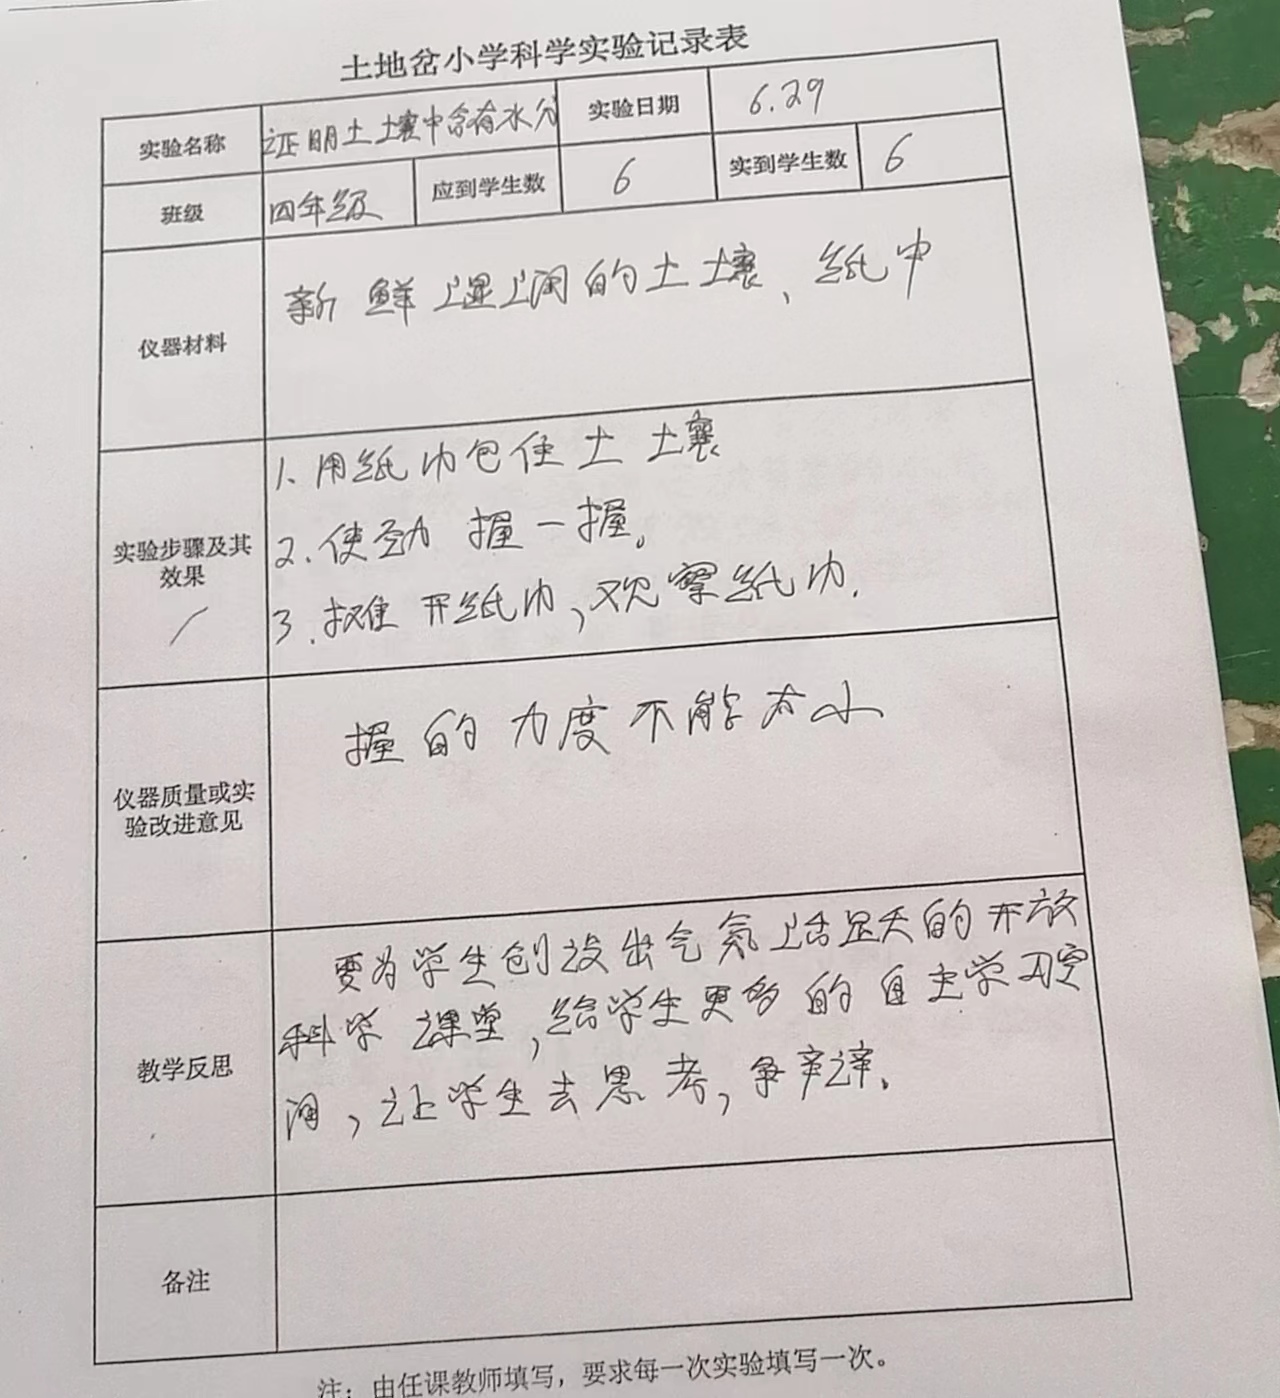 土地岔小学科学实验记录表
实验名称 证明土壤中含有水分 实验日期 6.29
班级 四年级 应到学生数 6 实到学生数 6
仪器材料 新鲜湿润的土壤、纸巾
实验步骤及其
效果
1.用纸巾包住土壤
2.使劲握一握。
3.摊开纸巾,观察纸巾.
仪器质量或实
验改进意见
握的力度不能太小
教学反思
要为学生创设出气氛活跃的开放
科学课堂,给学生更多的自主学习空
间,让学生去思考,争辩。
备注
注:由任课教师填写,要求每一次实验填写一次。